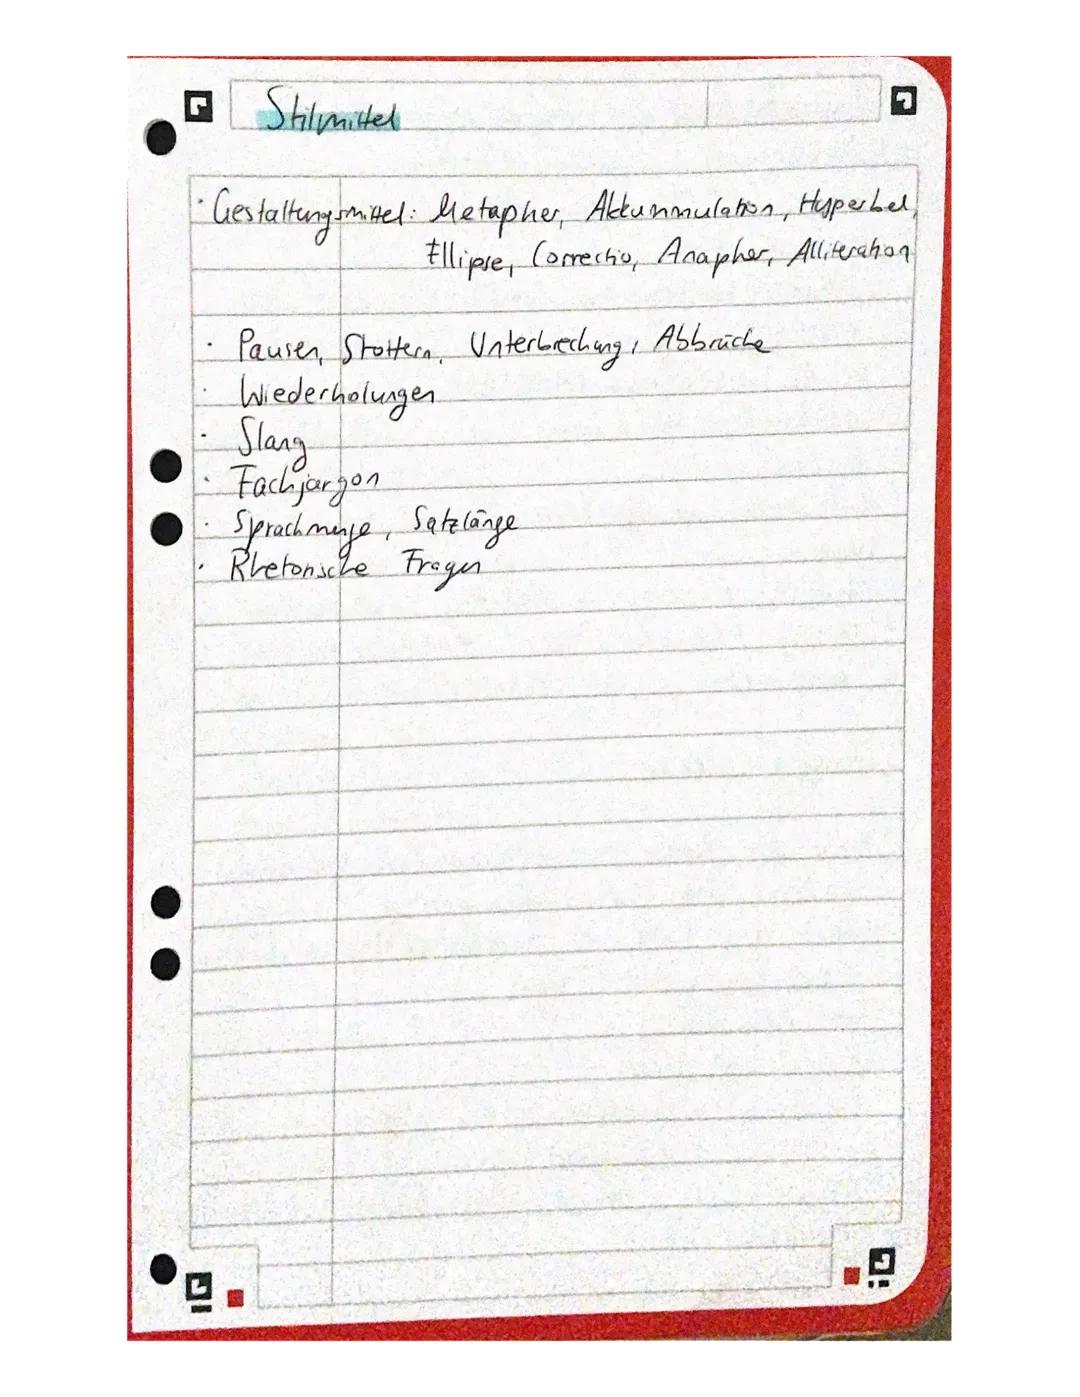 Stilmittel
· Gestaltungsmittel: Metapher, Akkunmulation, Hyperbel,
Ellipse, Correctio, Anapher, Alliteration
· Pausen, Stottern, Unterbrechung, Abbrüche
· Wiederholungen
· Slang
· Fachjargon
· Sprachmenge, Satzlänge
· Rhetorische Fragen